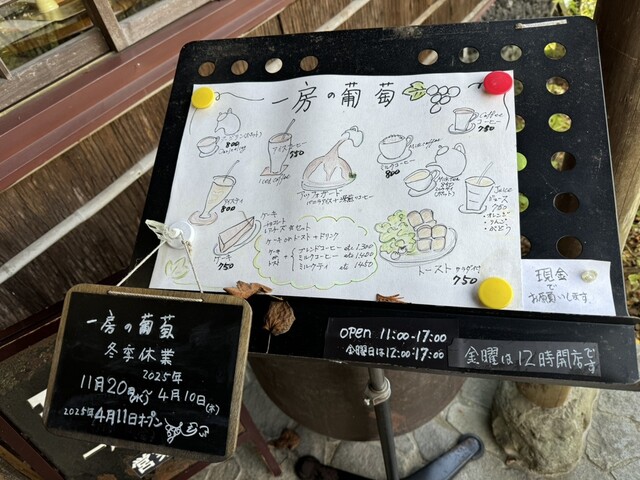 一房の葡萄
800
アイスコーヒー
750
ICE COFFEE
アッフォガード
ミルクコーヒー
800
Coffee
コーヒー
750
アイスティ
800
ケーキ
750
ケーキ
セット
ケーキ or トースト + ドリンク
ケーキ
or
トースト
+
ブレンドコーヒー etc 1300
ミルクコーヒー etc 1400
ミルクティ etc 1450
Milk Tea
850
Juice
ジュース
750
・オレンジ
・りんご
・ぶどう
トースト サラダ付
750
現金
で
お願いします。
OPEN 11:00-17:00
金曜日は12:00-17:00
金曜は12時開店です
一房の葡萄
冬季休業
2025年
11月20日から4月10日(木)
2025年4月11日オープン
営業